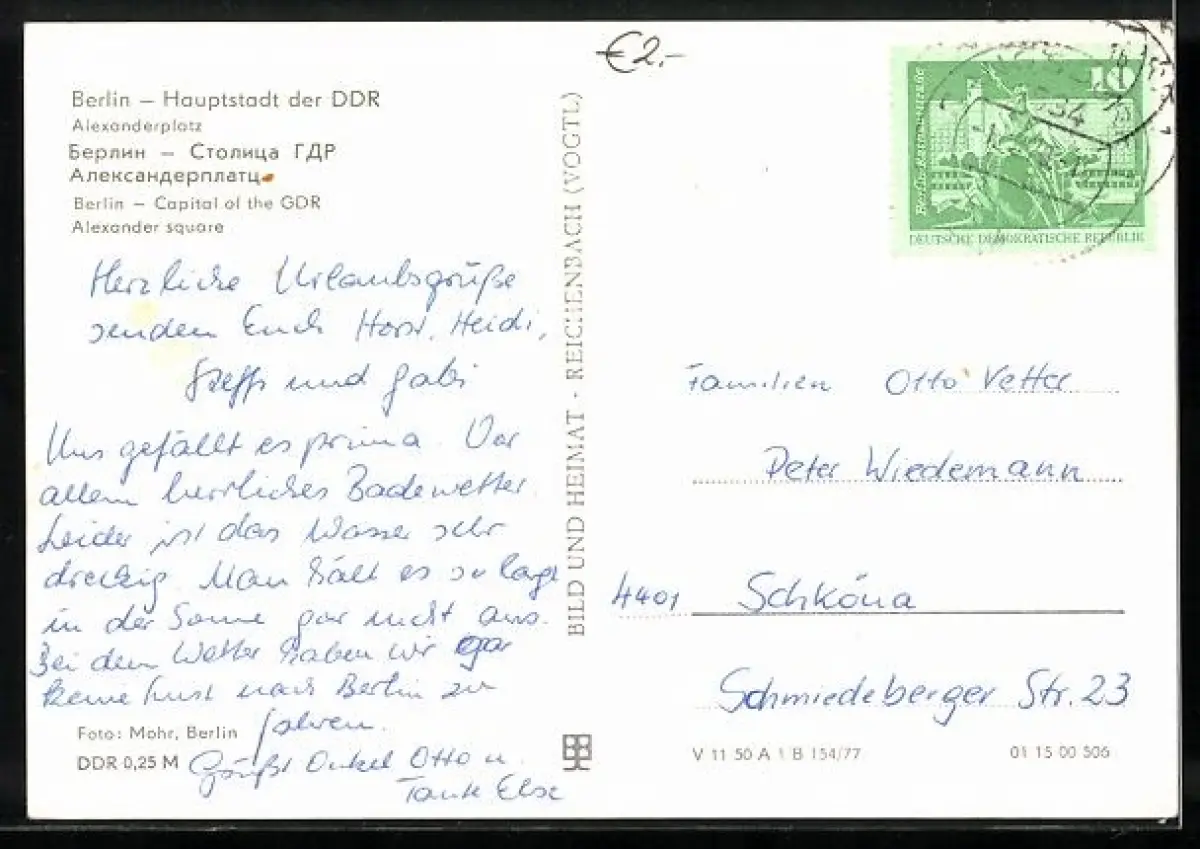 €2,-
Berlin – Hauptstadt der DDR
Alexanderplatz
Берлин – Столица ГДР
Александерплатц
Berlin – Capital of the GDR
Alexander square
Herzliche Urlaubsgrüße
senden Euch Horst, Heidi,
Steffi und Gabi
Uns gefällt es prima. Vor
allem herrliches Badewetter.
Leider ist das Wasser sehr
dreckig. Man hält es so lange
in der Sonne gar nicht aus.
Bei dem Wetter haben wir gar
keine Lust nach Berlin zu
fahren.
Grüßt Onkel Otto u.
Tante Else
Foto: Mohr, Berlin
DDR 0,25 M
BILD UND HEIMAT · REICHENBACH (VOGTL)
10
Berlin-Rathausstraße
DEUTSCHE DEMOKRATISCHE REPUBLIK
Familien Otto Vetter
Peter Wiedemann
4401 Schköna
Schmiedeberger Str. 23
V 11 50 A 1 B 154/77
01 15 00 506